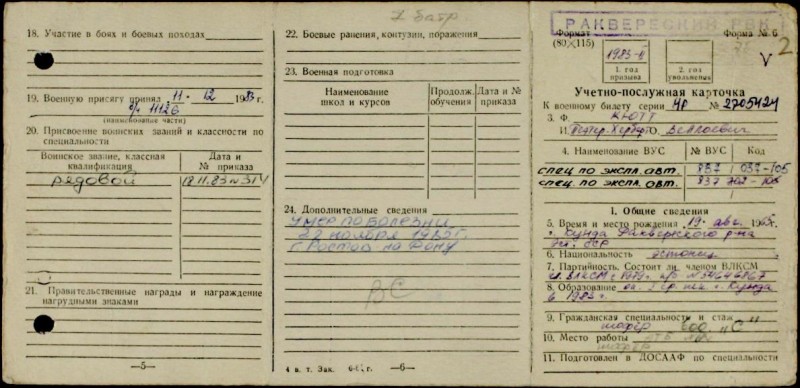 18. Участие в боях и боевых походах
19. Военную присягу принял 11 · 12 1983 г.
в/ч 11126
(наименование части)
20. Присвоение воинских званий и классности по специальности
Воинское звание, классная квалификация
Дата и № приказа
рядовой
18.11.83 № 314
21. Правительственные награды и награждение нагрудными знаками
—5—
7 батр
22. Боевые ранения, контузии, поражения
23. Военная подготовка
Наименование школ и курсов
Продолж. обучения
Дата и № приказа
24. Дополнительные сведения
Умер по болезни
ноября 1985 г.
г. Ростов на Дону
ВС
4 в. т. Зак.
—6—
РАКВЕРЕСКИЙ РВК
Формат (80×115)
Форма № 6
1983-
1. год призыва
2. год увольнения
V
2
Учетно-послужная карточка
К военному билету серии НР № 2705424
3. Ф. КЮТТ
И. О.
4. Наименование ВУС
№ ВУС
Код
СПЕЦ ПО ЭКСПЛ. АВТ. 837 037-105
СПЕЦ. ПО ЭКСПЛ. АВТ. 837
I. Общие сведения
5. Время и место рождения 19 · авг. 1965 г.
г. Кунда Раквереского р-на
6. Национальность эстонец
7. Партийность. Состоит ли членом ВЛКСМ
8. Образование г. Кунда
в 1983 г.
9. Гражданская специальность и стаж
шофер „С"
10. Место работы
шофер
11. Подготовлен в ДОСААФ по специальности